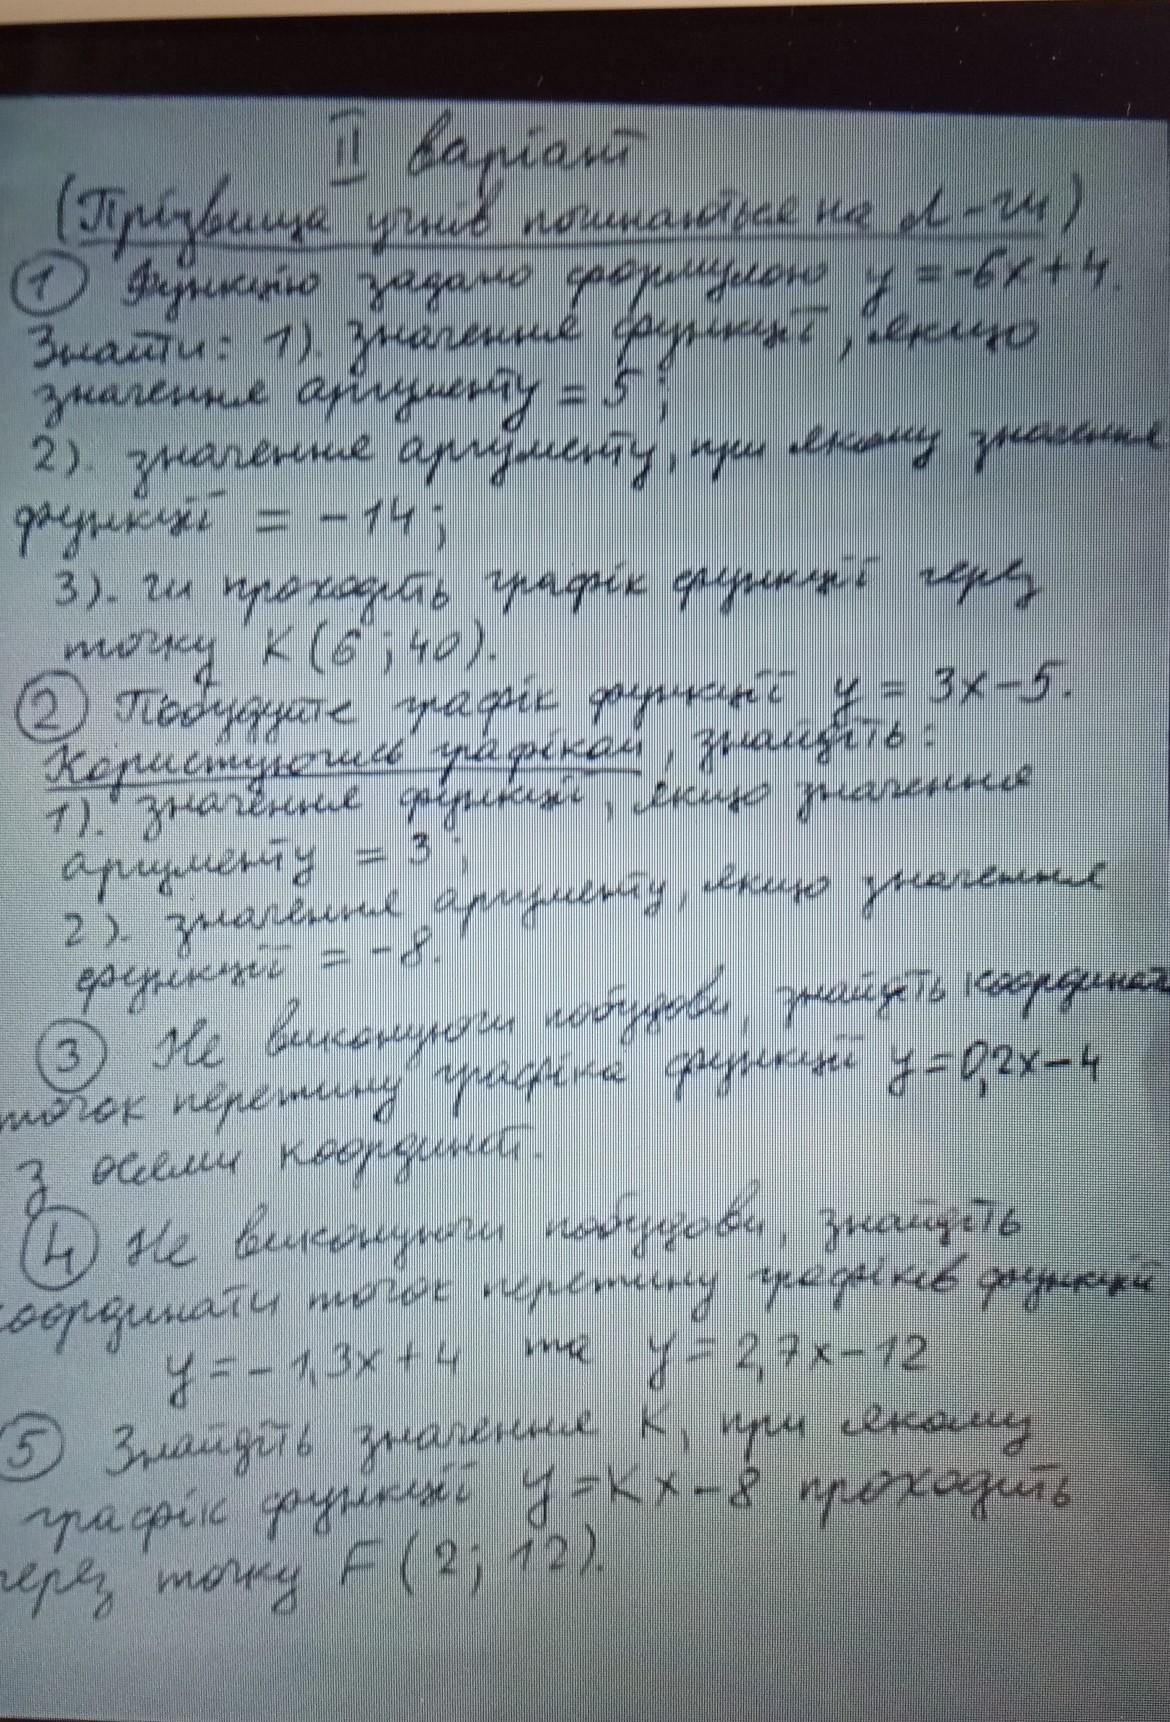 II варіант
(Прізвища учнів починаються на Л-Ч)
① Функцію задано формулою y = -6x + 4.
Знайти: 1). значення функції, якщо
значення аргументу = 5;
2). значення аргументу, при якому значення
функції = -14;
3). чи проходить графік функції через
точку K (6; 40).
② Побудуйте графік функції y = 3x - 5.
Користуючись графіком, знайдіть:
1). значення функції, якщо значення
аргументу = 3;
2). значення аргументу, якщо значення
функції = -8.
③ Не виконуючи побудови, знайдіть координат
точок перетину графіка функції y = 0,2x - 4
з осями координат.
④ Не виконуючи побудови, знайдіть
координати точок перетину графіків функцій
y = -1,3x + 4 та y = 2,7x - 12
⑤ Знайдіть значення K, при якому
графік функції y = Kx - 8 проходить
через точку F (2; 12).